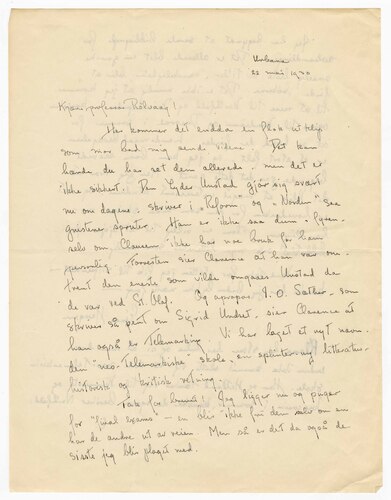 Urbana
22 mai 1930
Kjære professor Rölvaag!
Her kommer det endda en
som mor bad mig sende videre. Det kan
hende du har set den allerede men det er
ikke sikkert. Den Lyder Unstad gjör sig svært
nu om dagene: skriver i "Reform" og "Norden" saa
gneistene spruter. Han er ikke saa dum - 
selv om Clausen ikke har noe bruk for ham
personlig. Forresten sier Clarence at han var om-
trent den eneste som vilde omgaaes Unstad da
de var ved St. Olaf. Og apropos J. O. Sæther, som
skrev så pent om Sigrid Undset, sier Clarence at
han også er Telemarking. Vi har laget et nyt navn:
den "neo-Telemarkiske" skole, en splinter ny literatur-
historisk og kritisk retning.
Takk for brevet! Jeg ligger nu og puger
for "final exams" - en blir ikke fri den selv om en
har de andre ut av veien. Men så er det da også de
siste jeg blir plaget med.